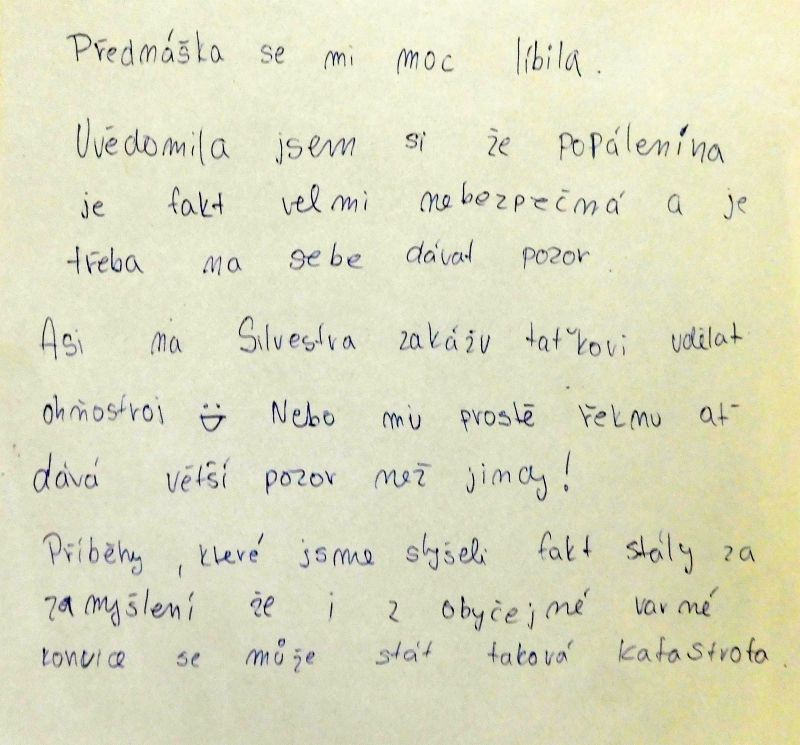 Předmáška se mi moc líbila.
Uvědomila jsem si že popálenína
je fakt velmi nebezpečná a je
třeba na sebe dávat pozor.
Asi na Silvestra zakážu taťkovi udělat
ohňostroj Nebo mu prostě řeknu ať
dává větší pozor než jindy!
Příběhy, které jsme slyšeli fakt stály za
zamyšlení že i z obyčejné varné
konvice se může stát taková katastrofa.